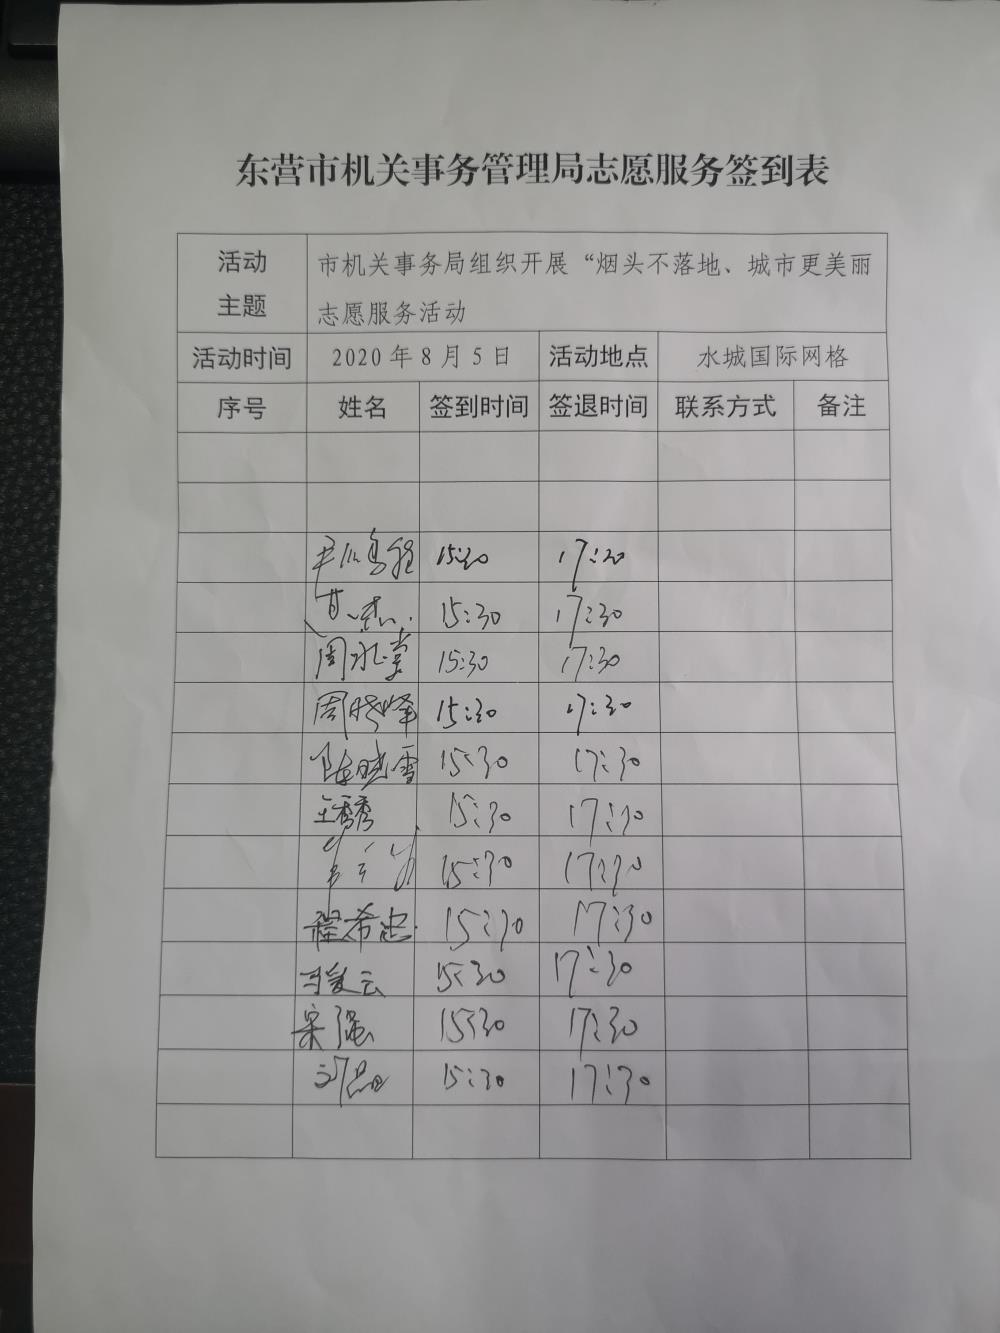 东营市机关事务管理局志愿服务签到表
活动主题 市机关事务局组织开展“烟头不落地、城市更美丽
志愿服务活动
活动时间 2020年8月5日 活动地点 水城国际网格
序号 姓名 签到时间 签退时间 联系方式 备注
15:30 17:30
15:30 17:30
周永堂 15:30 17:30
周晓峰 15:30 17:30
陈晓雪 15:30 17:30
王香秀 15:30 17:30
15:30 17:30
程希忠 15:30 17:30
马爱云 15:30 17:30
宋强 15:30 17:30
刘磊 15:30 17:30